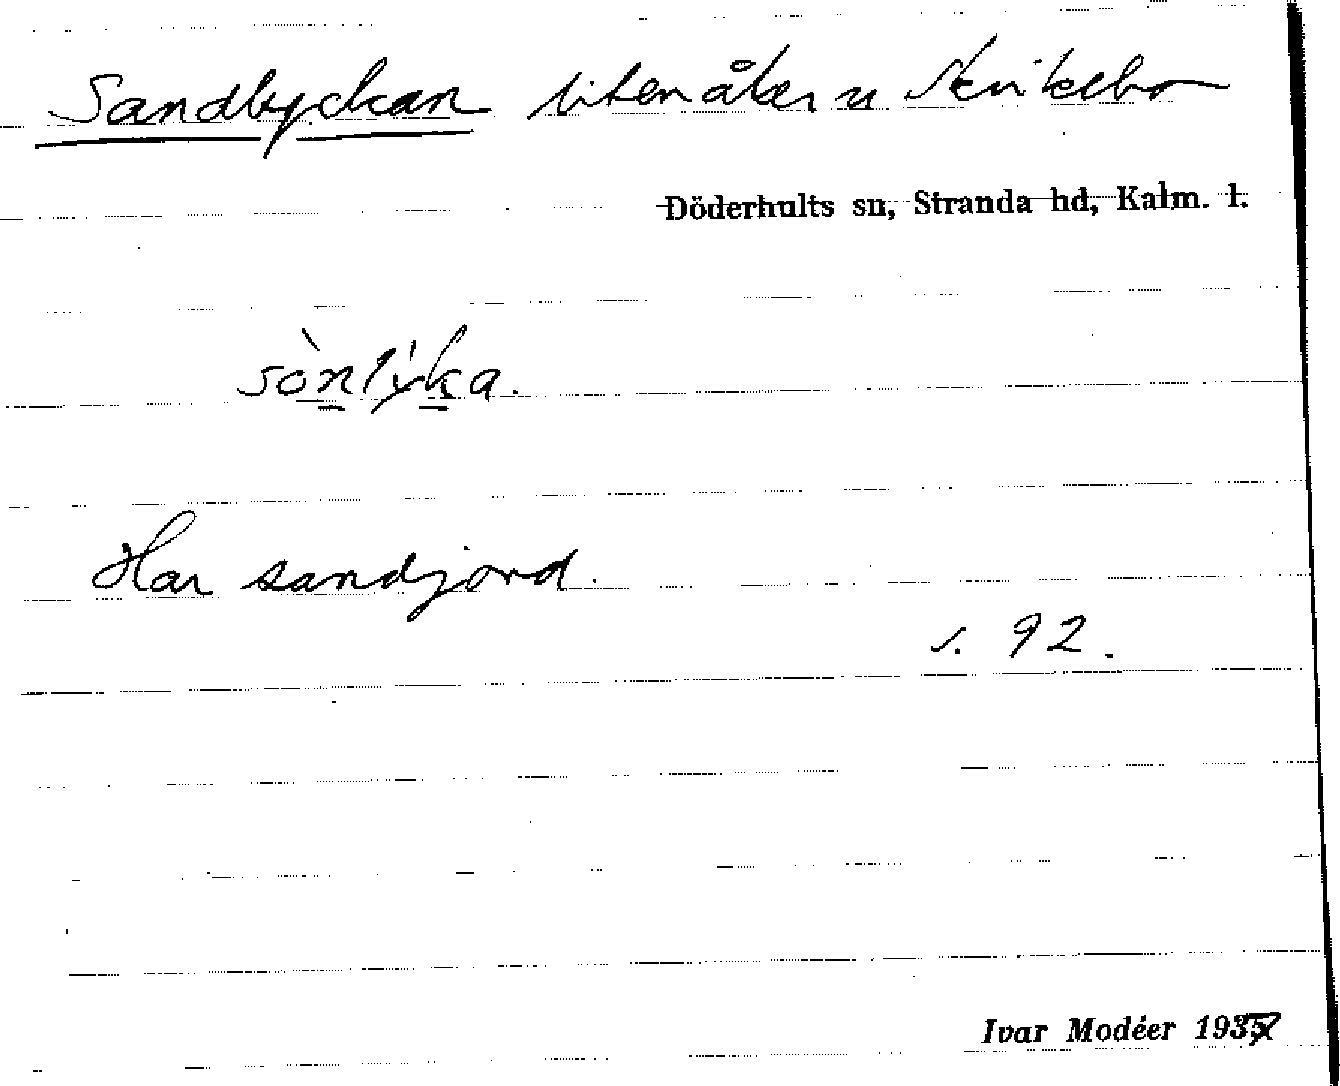 Sandlyckan liten åker u Århult
Döderhults sn, Stranda hd, Kalm. l.
sònlýka.
Har sandjord.
s. 92.
Ivar Modéer 1937